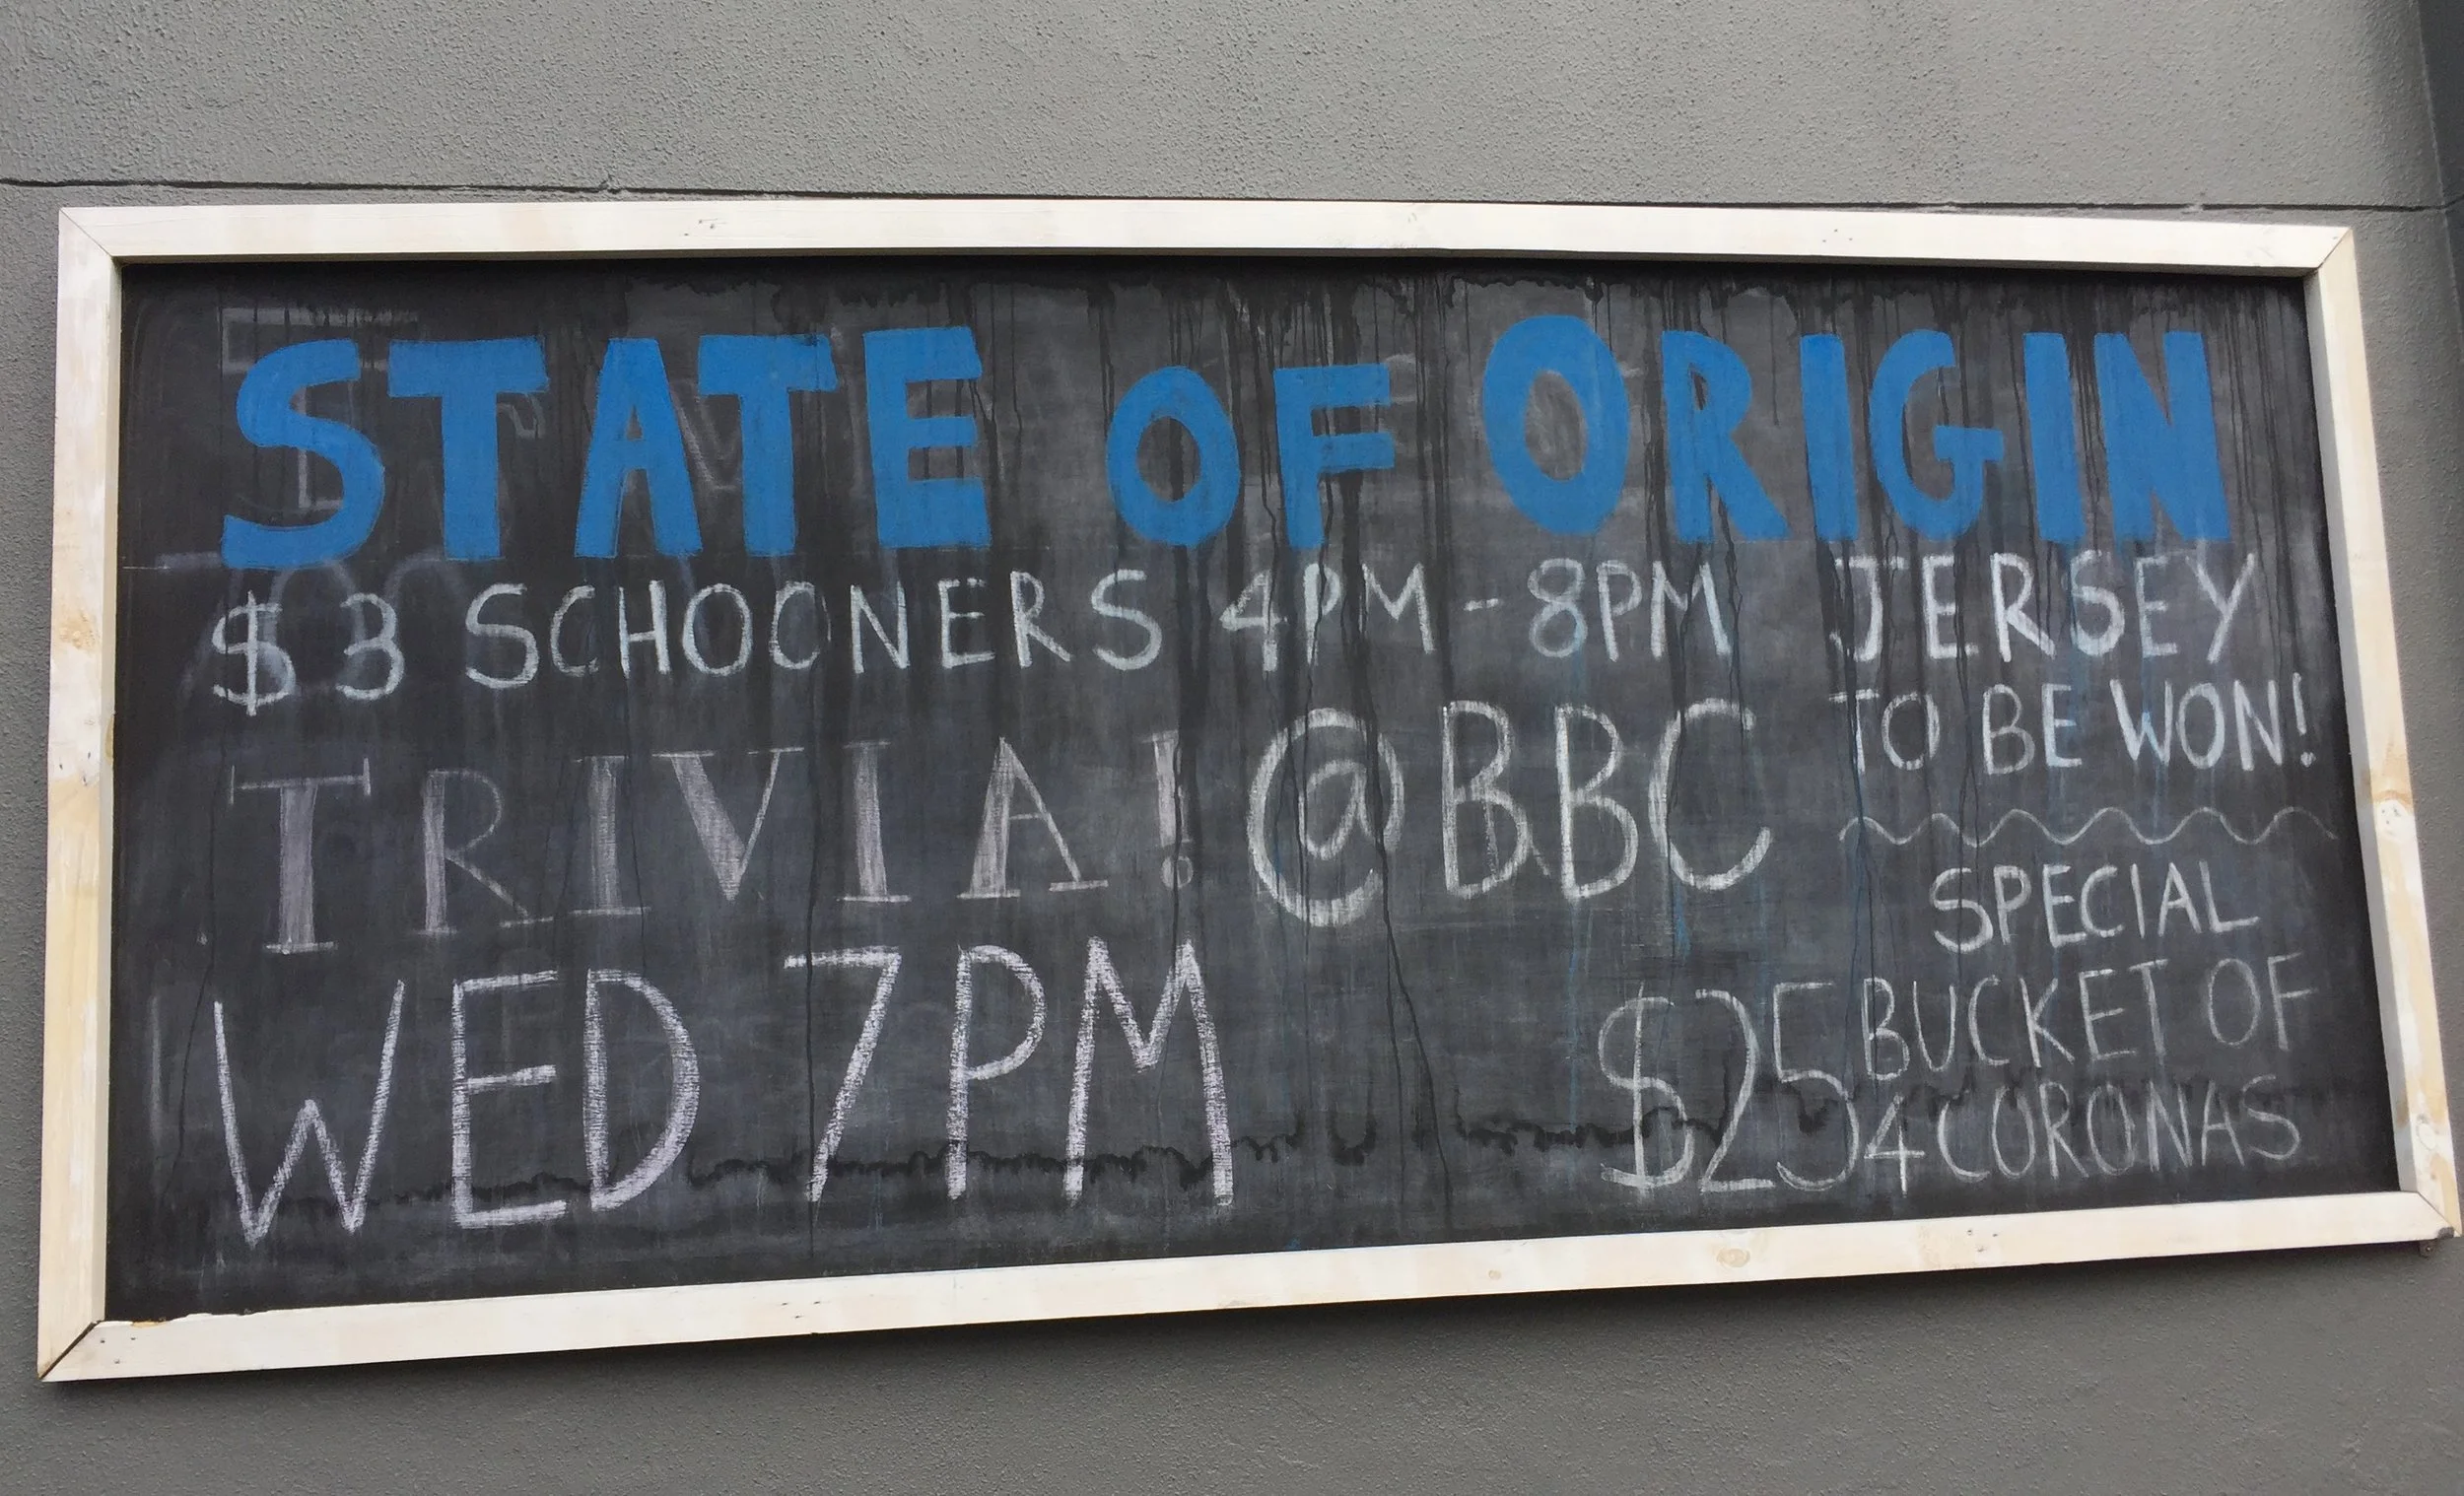 STATE OF ORIGIN
$3 SCHOONERS 4PM - 8PM
JERSEY
TO BE WON!
TRIVIA! @BBC
WED 7PM
SPECIAL
$25 BUCKET OF
4 CORONAS